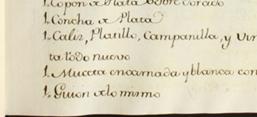 1. Copon de Plata sobre dorado
1. Concha de Plata
1. Caliz, Platillo, Campanilla, y Vin
ta todo nuevo
1. Muceta encarnada y blanca con
1. Guion de lo mismo